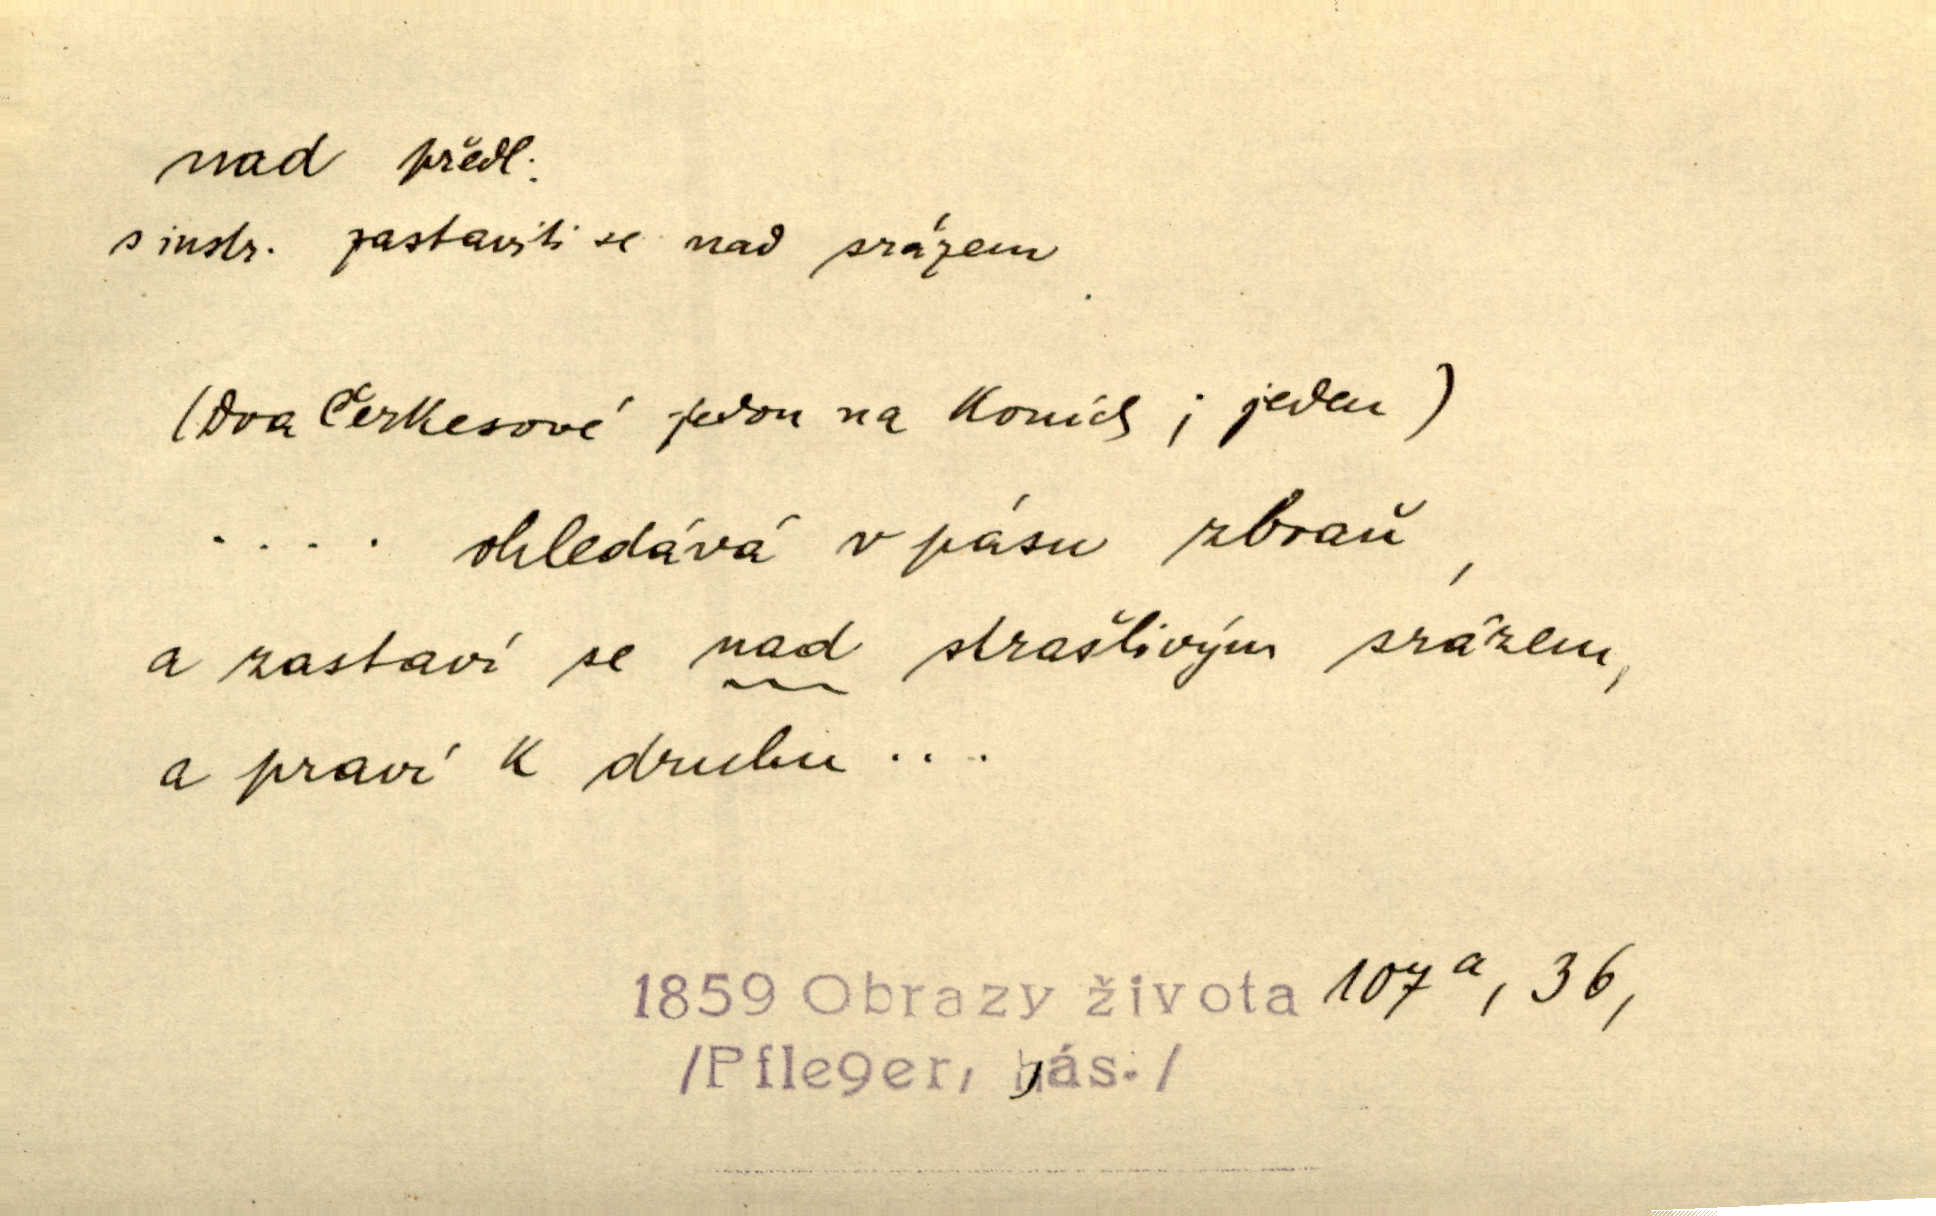 nad předl.
s instr. zastaviti se nad srázem
(Dva Čerkesové jedou na koních; jeden)
. . . . ohledává v pásu zbraň,
a zastaví se nad strašlivým srázem,
a praví k druhu . . .
1859 Obrazy života 107a, 36,
/Pfleger, bás./